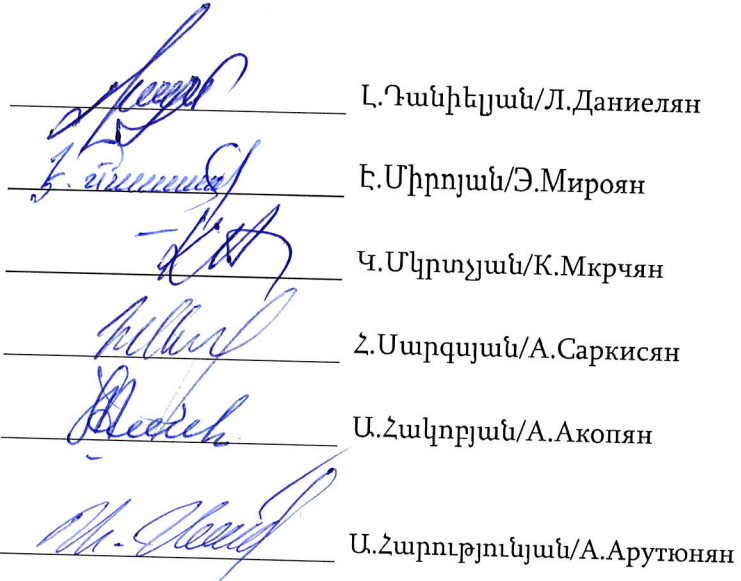 Լ.Դանիելյան/Л.Даниелян
Է.Միրոյան/Э.Мироян
Կ.Մկրտչյան/К.Мкрчян
Հ.Սարգսյան/А.Саркисян
Ա.Հակոբյան/А.Акопян
Ա.Հարությունյան/А.Арутюнян